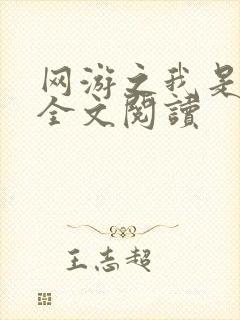 网游之我是
全文閱讀
王志超